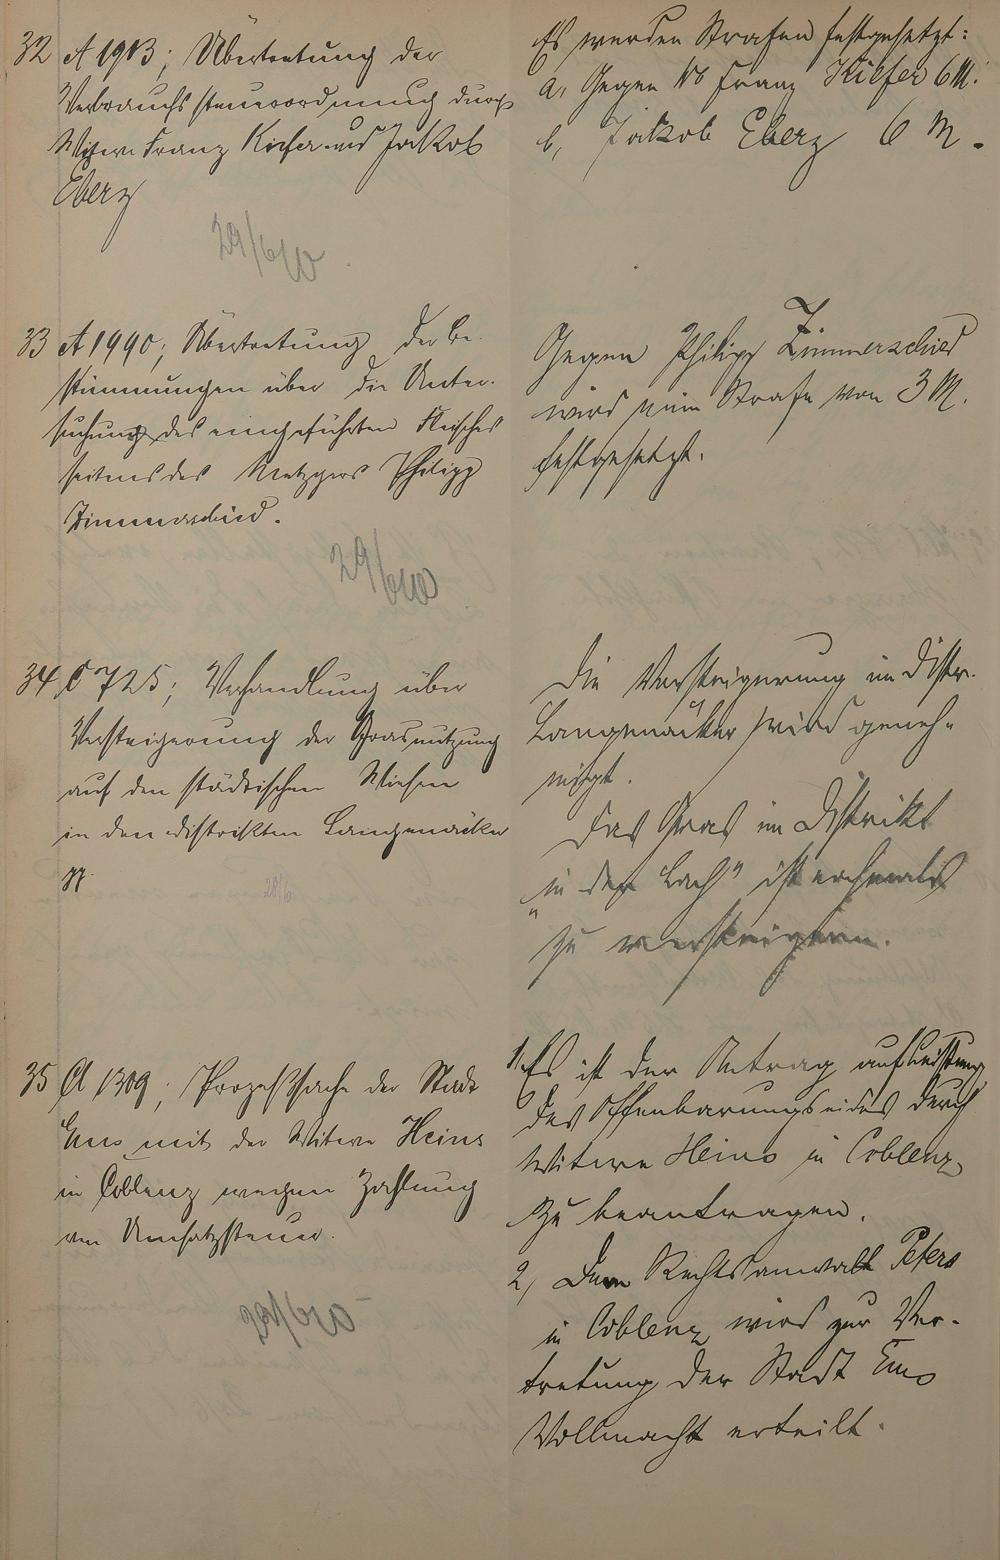 32 A 1913; Übertretung der
Verbrauchssteuerordnung durch
Witwe Franz Kiefer und Jakob
Eberz
Es werden Strafen festgesetzt:
a, Gegen Ww Franz Kiefer 6 M.
b, Jakob Eberz 6 M.
33 A 1990; Übertretung der Be-
stimmungen über die Unter-
suchung des eingeführten Fleisches
seitens des Metzgers Philipp
Zimmerschied.
Gegen Philipp Zimmerschied
wird eine Strafe von 3 M.
festgesetzt.
34 C 725; Verhandlung über
Versteigerung der Grasnutzung
auf den städtischen Wiesen
in den Distrikten Langenäcker
pp.
28/6
Die Versteigerung im Distr.
Langenäcker wird geneh-
migt.
Das Gras im Distrikt
„in der Bach" ist
zu versteigern.
35 A 1309; Prozeßsache der Stadt
Ems mit der Witwe Heins
in Coblenz wegen Zahlung
von Umsatzsteuer.
1, Es ist der Antrag auf Leistung
des Offenbarungseides durch
Witwe Heins in Coblenz
zu beantragen.
2, Dem Rechtsanwalt Peters
in Coblenz wird zur Ver-
tretung der Stadt Ems
Vollmacht erteilt.